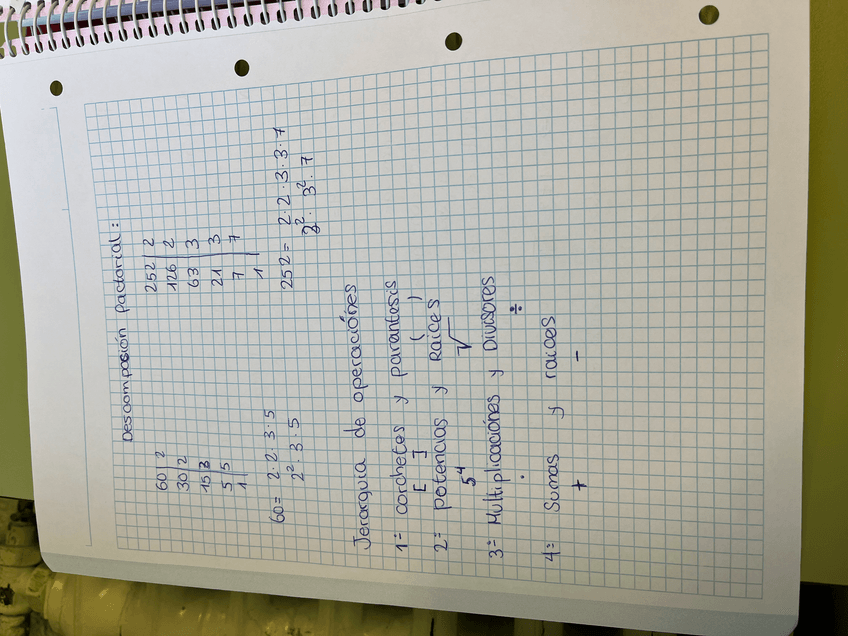 Descomposición factorial:
60 | 2
30 | 2
15 | 3
5 | 5
1
60 = 2 · 2 · 3 · 5
2² · 3 · 5
252 | 2
126 | 2
63 | 3
21 | 3
7 | 7
1
252 = 2 · 2 · 3 · 3 · 7
2² · 3² · 7
Jerarquia de operaciónes
1º= corchetes y parantesis
[ ] ( )
2º= potencias y Raíces
5⁴ √
3º= Multiplicaciónes y Divisores
· ÷
4= Sumas y raices
+ -